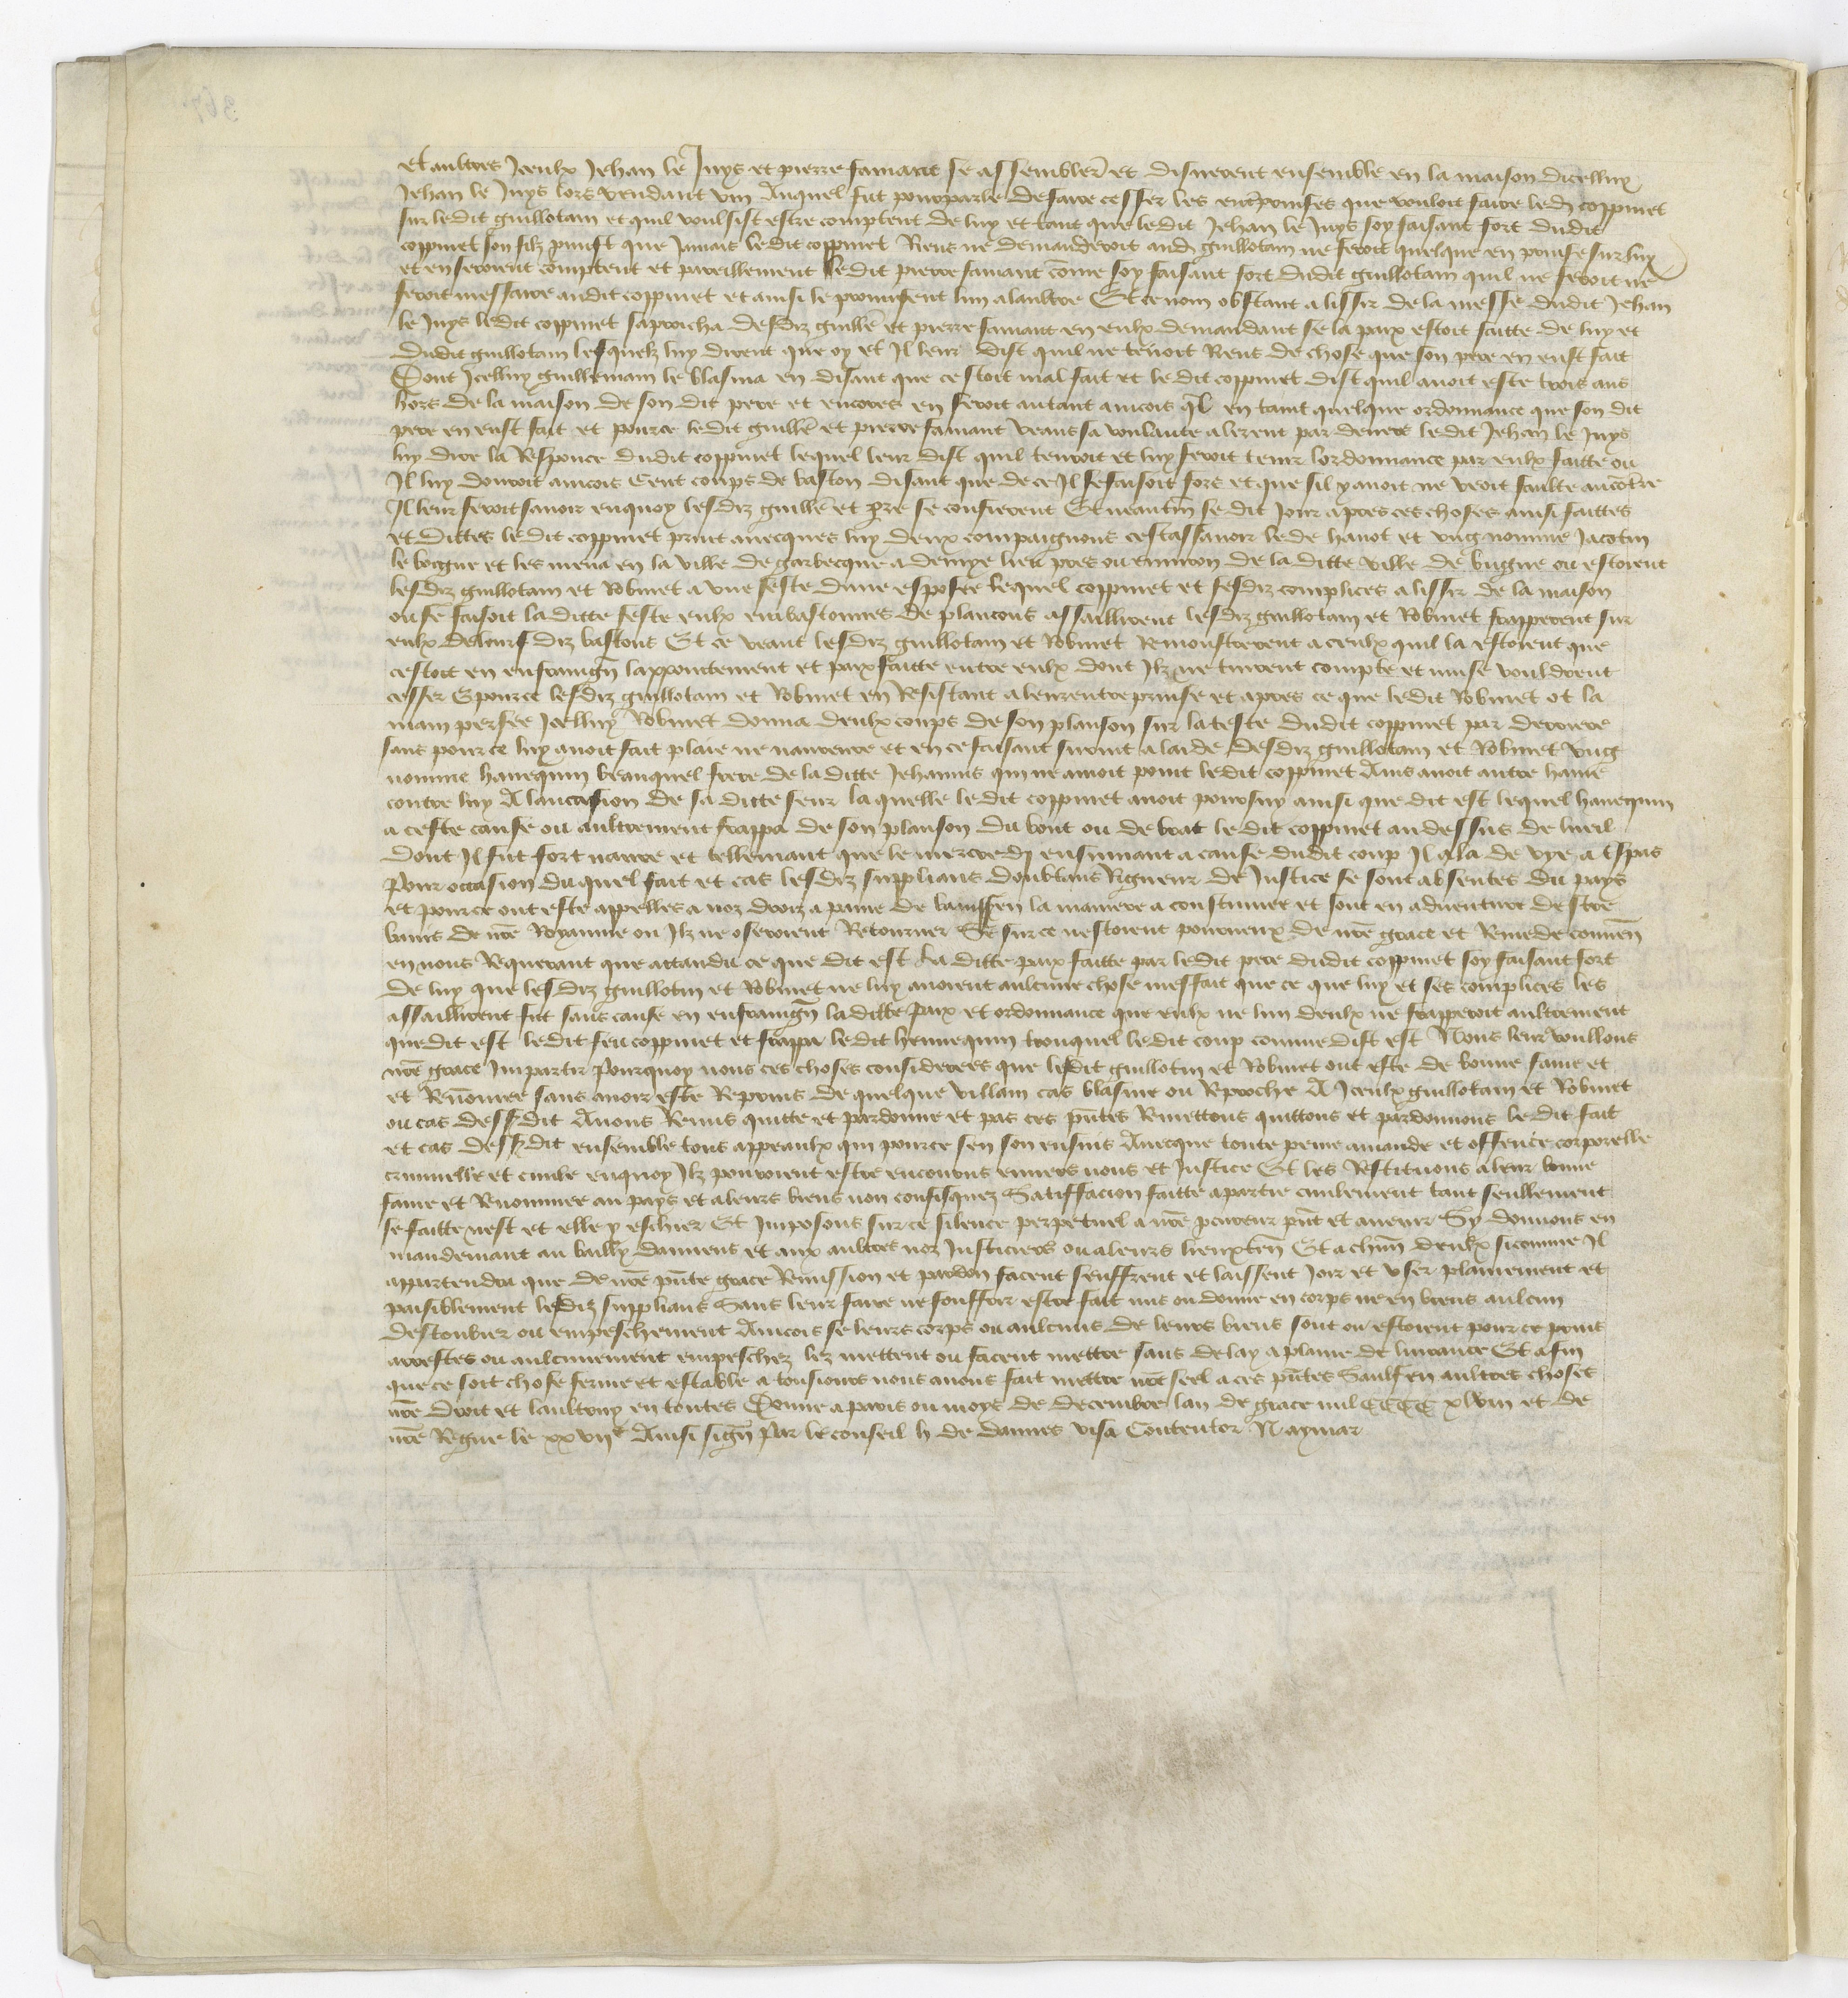 et aultres Iceulx Jehan le Juys et pierre samant se assemblerẽt et disnerent ensemble en la maison dicelluy
Jehan le Juys lors vendant vin Auquel fut pourparle de faire cesser les entreprinses que vouloit faire ledj coppinet
sur ledit guillotam et quil voulsist estre comptent de luy et tant que ledit Jehan le Juys soy faisant fort dudit
coppinet son filz prinst que Jamais ledit coppinet Riens ne demanderoit audj guillotam ne feroit quelque en prinse sur luy
et en seroient comptent et pareillement ledit pierre samant cõme soy faisant fort dudit guillotam quil ne feroit ne
feroit meffaire audit coppinet et ainsi le promisrent lun a laultre Et ce nom obstant a lissir de la messe dudit Jehan
le Juys ledit coppinet saprocha desdiz guillẽ et pierre samant en eulx demandant se la paix estoit faitte de luy et
dudit guillotam lesquelz luy dirent que oy et Il leur dist quil ne tenoit Riens de chose que son pere en eust fait
Dont Icelluy guillemam le blasma en disant que cestoit mal fait et ledit coppinet dist quil auoit este trois ans
hors de la maison de son dit pere et encores en seroit autant aincois ql en tainst quelque ordonnance que son dit
pere en eust fait et pource ledit guillẽ et pierre samant veans sa voulante alerent par deuers ledit Jehan le Juys
luy dire la Responce dudit coppinet lequel leur dist quil tenroit et luy feroit tenir lordonnance par eulx faitte ou
Il luy donroit aincois Cent coups de baston disant que de ce Il se faisoit fors et que sil y auoit ne veoit faulte aucõtre
Il leur feroit sauoir enquoy lesdiz guillẽ et pre se confierent Et neantm̃ se dit Jour apres ces choses ainsi faittes
et dittes ledit coppinet print auecques luy deux compaignons cestassauoir lede hanot et vng nomme Jacotin
le borgne et les mena en la ville de garbecque a demye lieu pres ou enuiron de la ditte ville de bugne ou estoient
lesdiz guillotam et Robinet a vne feste dune espousee lequel coppinet et sesdiz complices a lissir de la maison
ou se faisoit la ditte feste eulx embastonnes de plancons assaillirent lesdiz guillotam et Robinet frapperent sur
eulx de leursdiz bastons Et ce veant lesdiz guillotam et Robinet Remonstrerent a ceulx quil la estoient que
cestoit en enfraingñ lappointement et paix faitte entre eulx dont Ilz ne tindrent compte et nuise vouldrent
cesser Et pource lesdiz guillotam et Robinet en Resistant a leur entreprinse et apres ce que ledit Robinet ot la
main persee Icelluy Robinet donna deulx coups de son planson sur la teste dudit coppinet par derriere
sans pource luy auoit fait plaie ne nauveure et en ce faisant suruint a laide desdiz guillotam et Robinet vng
nomme hanequin branquel frere de la ditte Jehannis qui ne amoit point ledit coppinet Ains auoit autre hame
contre luy A laucasion de sa ditte seur laquelle ledit coppinet auoit poursuy ainsi que dit est lequel hanequin
a ceste cause ou aultrement frappa de son planson du bout ou de brac ledit coppinet au dessus de lueil
dont Il fut fort naure et tellemant que le mercredj ensuiuant a cause dudit coup Il ala de vye a tspas
Pour occasion duquel fait et cas lesdiz supplians doubtans Rigueur de Justice se sont absentes du pays
et pource ont este appelles a noz droiz a paine de baniss en la maniere a coustumee et sont en aduenture destre
banis de nrẽ Royaume ou Ilz ne oseroient Retourner Se sur ce nestoient pourueux de nrẽ grace et Remede conuen̄
en nous Requerant que attandu ce que dit est La ditte paix faitte par ledit pere dudit coppinet soy faisant fort
de luy que lesdiz guillotin et Robinet ne luy auoient aulcune chose meffait que ce que luy et ses complices les
assaillirent fut sans cause en enfraingñ laditte paix et ordonnance que eulx ne lun deulx ne frapperoit aultrement
que dit est ledit feu coppinet et frappa ledit hennequin bronquel ledit coup comme dist est Nous leur voullons
nrẽ grace Impartir Pourquoy nous ces choses considerees que lesdit guillotin et Robinet ont este de bonne fame et
et Renõmee sans auoir este Reprins de quelque villam cas blasme ou Reproche A Iceulx guillotam et Robinet
ou cas dessdit Auons Remis quitte et pardonne et par ces pñtes Remettons quittons et pardonnons ledit fait
et cas dessdit ensemble tous appeaulx qui pource sen son ensuis Auecque toute peine amande et offence corporelle
criminelle et ciuile enquoy Ilz pourroient estre encourus enuers nous et Justice Et les Restituons a leur bonne
fame et Renommee au pays et a leurs biens non confisquez Satiffacion faitte a partie ciuilement tant seullement
se faitte nest et elle y eschiet Et Imposons sur ce silence perpetuel a nrẽ procureur pñt et auenir Sy donnons en
mandemant au bailly damiens et aux aultres noz Justiciers ou a leurs lieuxteñ Et a chũ deulx sicomme Il
appartendra que de nrẽ pñte grace Remission et pardon facent seuffrent et laissent Joir et vser plainement et
paisiblement lesdiz supplians Sans leur faire ne souffrir estre fait mis ou donne en corps ne en biens aulcun
destourbier ou empeschement Aincois se leurs corps ou aulcuns de leurs biens sont ou estoient pource prins
arrestes ou aulcunement empeschez lez mettent ou facent mettre sans delay a plaine deliurance Et afin
que ce soit chose ferme et estable a tousiours nous auons fait mettre nrẽ seel a ces pñtes Saulf en aultres choses
nrẽ droit et laultruy en toutes Donne a paris ou moys de decembre lan de grace mil CCCC xlviii et de
nrẽ Regne le xxvii^e Ainsi sign̄ Par le conseil h de dannes visa Contentor N aymar